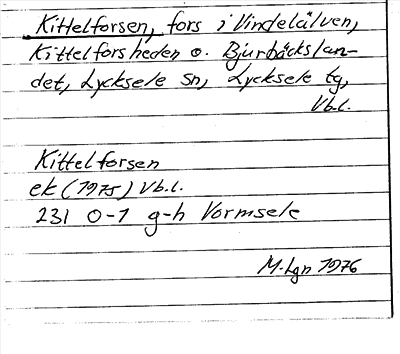 Kittelforsen, fors i Vindelälven,
Kittelforsheden o. Bjurbäckslan-
det, Lycksele sn, Lycksele tg,
Vb.l.
Kittelforsen
ek (1975) Vb.l.
23I 0-1 g-h Vormsele
M.Lgn 1976